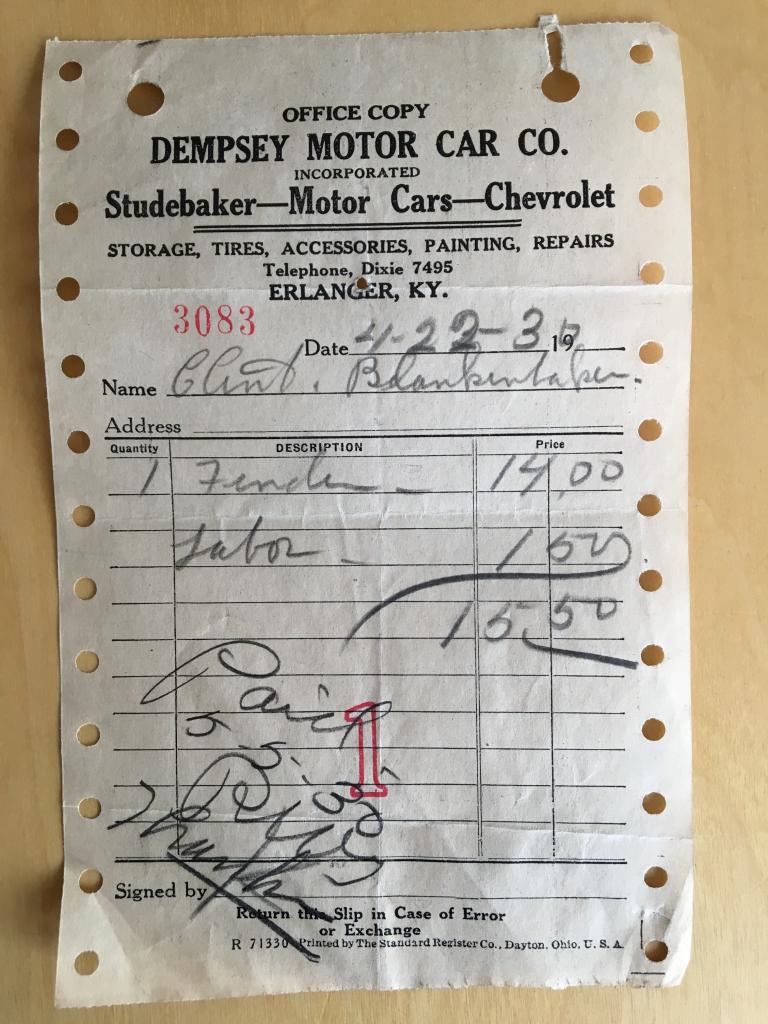 OFFICE COPY
DEMPSEY MOTOR CAR CO.
INCORPORATED
Studebaker—Motor Cars—Chevrolet
STORAGE, TIRES, ACCESSORIES, PAINTING, REPAIRS
Telephone, Dixie 7495
ERLANGER, KY.
3083
Date 4-22-3 19
Name Clint. Blankenbaker.
Address
Quantity DESCRIPTION Price
1 Fender - 14,00
Labor - 1 50
15.50
Paid
5-5-
I
Thanks
Signed by
Return this Slip in Case of Error
or Exchange
R 71330 Printed by The Standard Register Co., Dayton, Ohio, U. S. A.